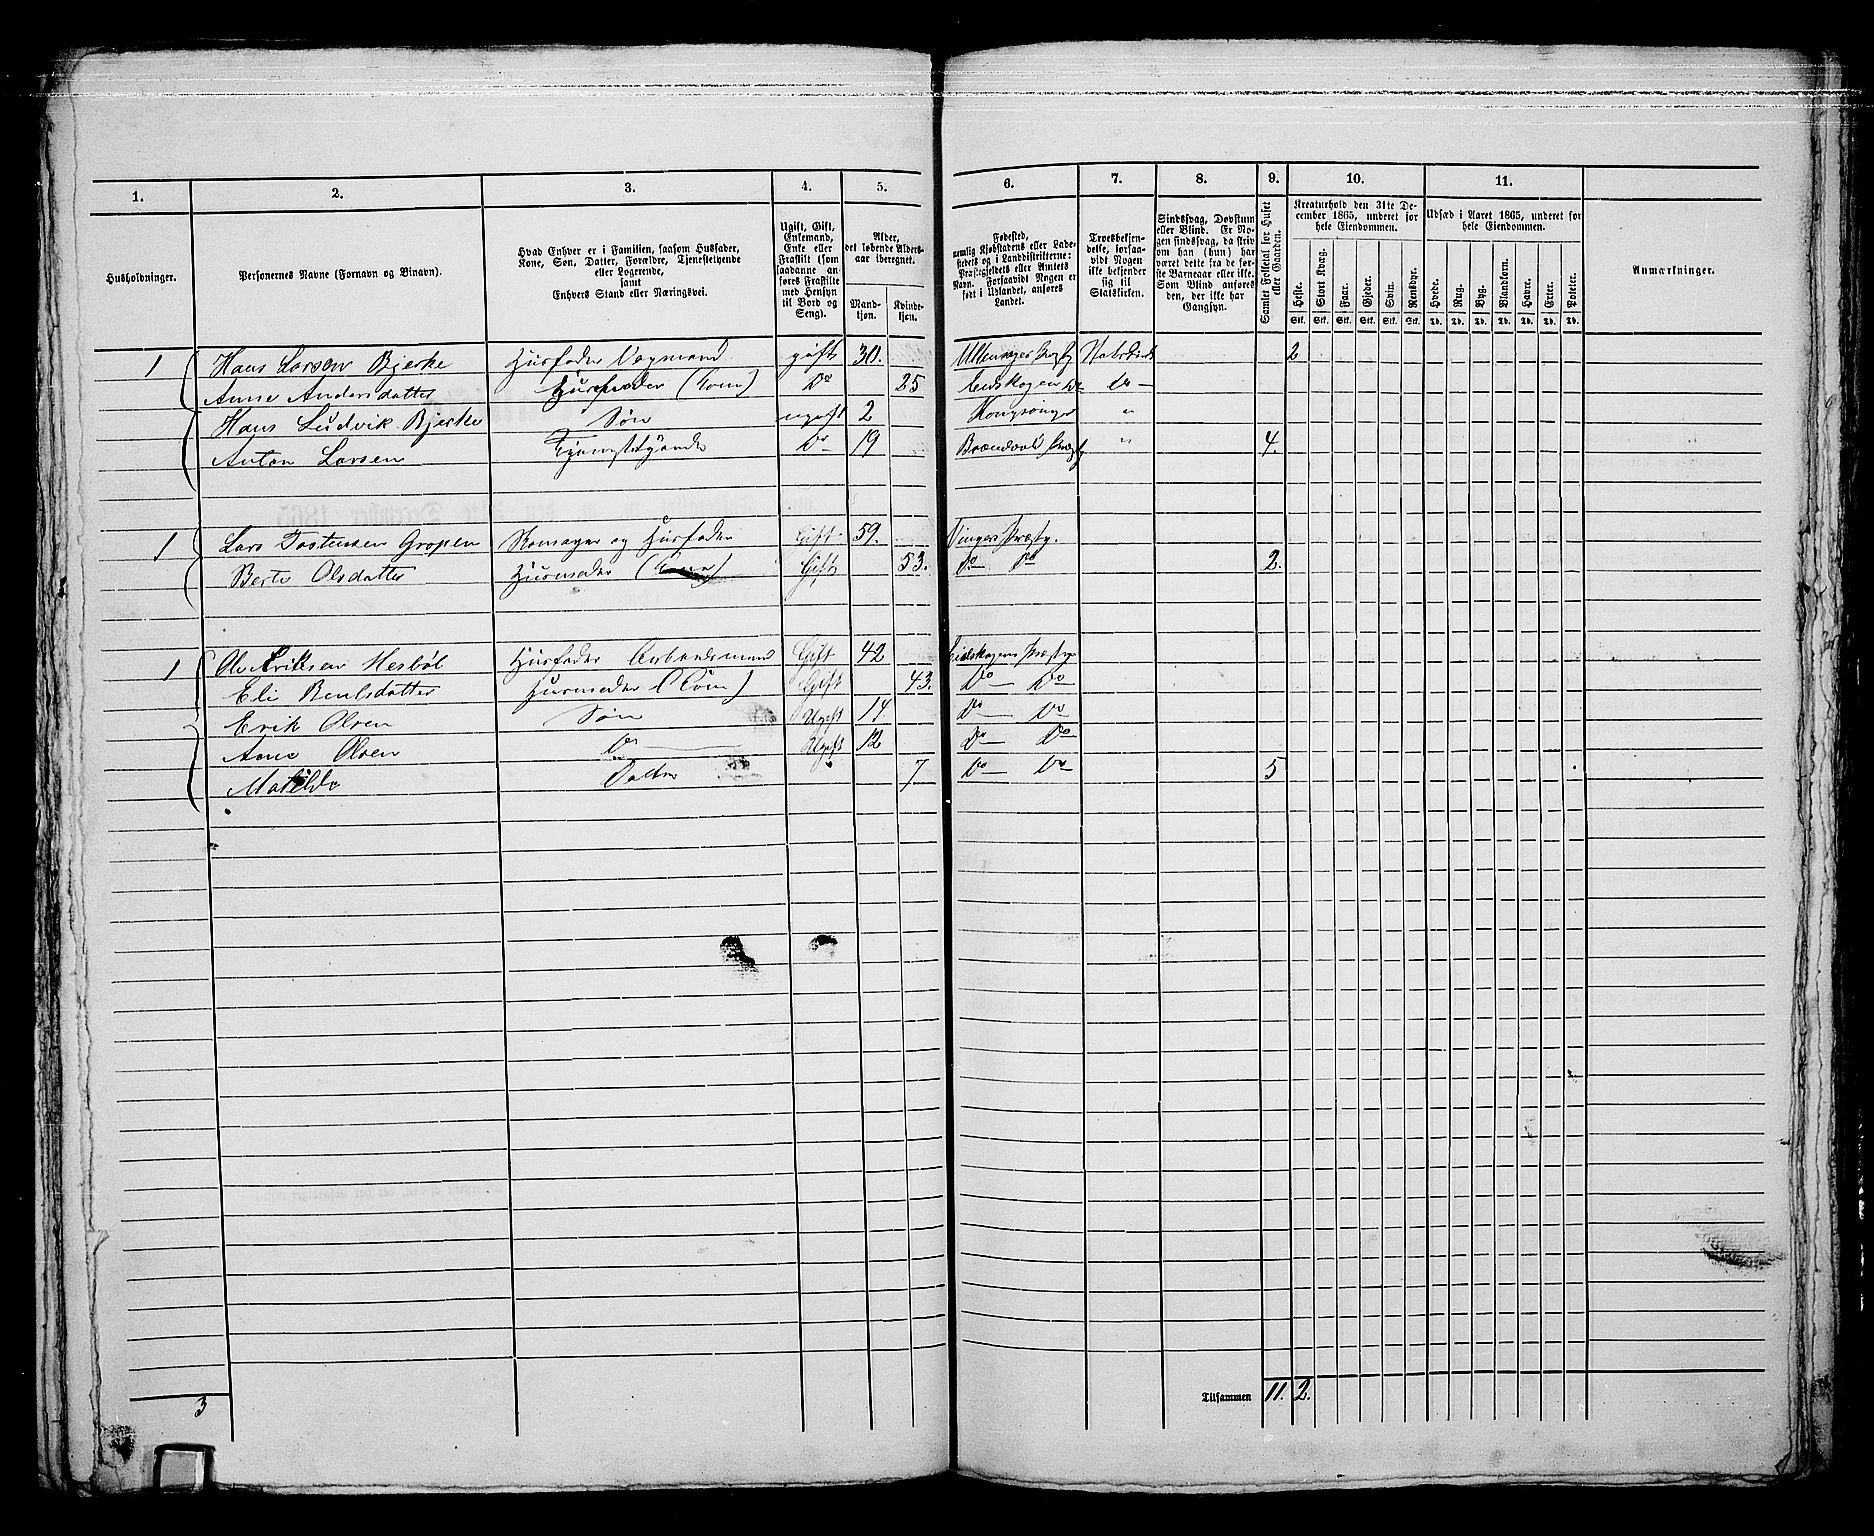 1. 2. 3. 4. 5. 6. 7. 8. 9. 10. 11.
Husholdninger.
Personernes Navne (Fornavn og Binavn).
Hvad Enhver er i Familien, saasom Husfader,
Kone, Søn, Datter, Forældre, Tjenestetyende
eller Logerende,
samt
Enhvers Stand eller Næringsvei.
Ugift, Gift,
Enkemand,
Enke eller
Fraskilt (som
saadanne an-
føres Fraskilte
med Hensyn
til Bord og
Seng).
Alder,
det løbende Alders-
aar iberegnet.
Mand-
kjøn.
Kvinde-
kjøn.
Fødested,
nemlig Kjøbstadens eller Lade-
stedets og i Landdistrikterne:
Præstegjeldets eller Amtets
Navn. Forsaavidt Nogen er
født i Udlandet, anføres
Landet.
Troesbekjen-
delse, forsaa-
vidt Nogen
ikke bekjender
sig til
Statskirken.
Sindssvag, Døvstum
eller Blind. Er No-
gen sindssvag, da skriv
om han (hun) har
været dette fra de før-
ste Barneaar eller ikke.
Som Blind anføres
den, der ikke har
Gangsyn.
Samlet Folketal for Huset
eller Gaarden.
Kreaturhold den 31te De-
cember 1865, underet for
hele Eiendommen.
Heste. Stort Kvæg. Faar. Gjeder. Svin. Rensdyr.
Stk. Stk. Stk. Stk. Stk. Stk.
Udsæd i Aaret 1865, underet for
hele Eiendommen.
Hvede. Rug. Byg. Blandkorn. Havre. Erter. Poteter.
Td. Td. Td. Td. Td. Td. Td.
Anmærkninger.
1 Hans Larsen Bjerke Husfader Vogmand gift 30. 2
Anne Andersdatter (Kone) Do 25 Eidskogen Do Do
Hans Ludvik Bjerke Søn ugift 2 Kongsvinger "
Anton Larsen Do 19 " 4.
1 Lars Tostensen Gropen og Husfader Gift 59. Vinger Præstg.
Berte Olsdatter Husmoder (Kone) Gift 53. Do Do 2.
1 Ole Eriksen Hesbøl Husfader Arbeidsmand Gift 42 Eidskogens Præstg
Eli Husmoder (Kone) Gift 43. Do Do
Erik Olsen Søn Ugift 14. Do Do
Arne Olsen Do Ugift 12 Do Do
Matilde Datter 7 Do Do 5
3 Tilsammen 11. 2.